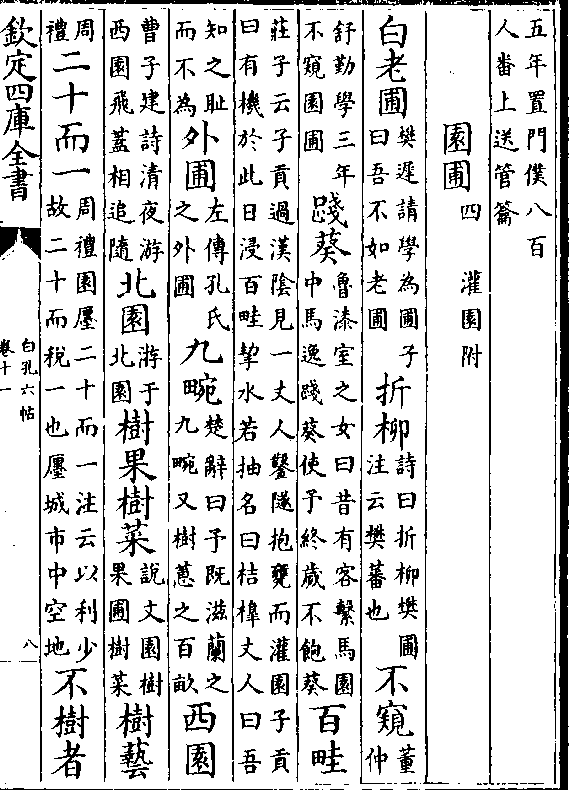 五年置門僕八百
人番上送管籥
園圃四　灌園附
白老圃樊遲請學為圃子曰吾不如老圃折柳詩曰折柳樊圃注云樊蕃也不窺董仲
舒勤學三年不窺園圃踐葵魯漆室之女曰昔有客繫馬園中馬逸踐葵使予終歲不飽葵百畦
莊子云子貢過漢陰見一丈人鑿隧抱甕而灌園子貢曰有機於此日浸百畦挈水若抽名曰桔橰丈人曰吾
知之耻而不為外圃左傳孔氏之外圃九畹楚辭曰予既滋蘭之九畹又樹蕙之百畝西園
曹子建詩清夜游西園飛蓋相追隨北園游于北園樹果樹菜說文園樹果圃樹菜樹藝
周禮二十而一周禮園廛二十而一注云以利少故二十而稅一也廛城市中空地不樹者
欽定四庫全書
白孔六帖
卷十一
八